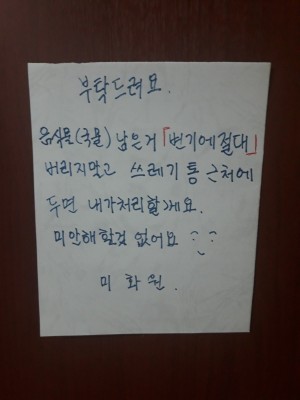 부탁드려요.
음식물(국물) 남은거 「변기에절대」
버리지말고 쓰레기 통 근처에
두면 내가처리할께요.
미안해할걸 없어요
미 화 원.